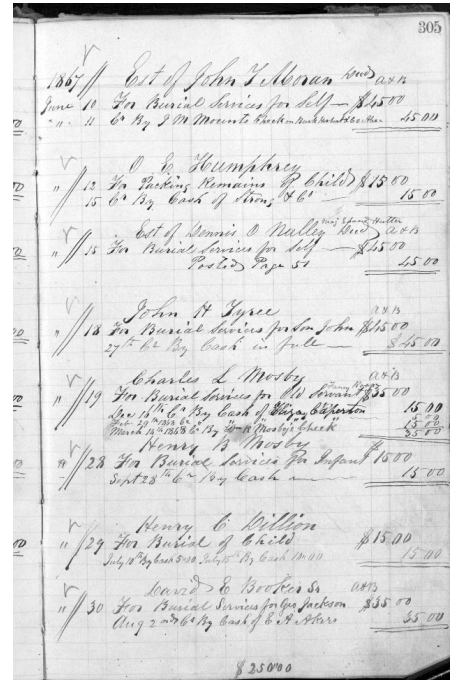 305
1867 Est of John T Moran Decd A&B
June 10 For Burial Services for Self $45 00
" 11 Cr By J M Mounts Check 45 00
O E Humphrey
" 12 For Packing Remains of Child $15 00
15 Cr By Cash of Strong & Co 15 00
Est of Dennis O Nalley Decd A&B
" 15 For Burial Services for Self $45 00
Posted Page 51 45 00
John H Tyree A&B
" 18 For Burial Services for Son John $45 00
27th Cr By Cash in full $45 00
Charles L Mosby A&B
" 19 For Burial Services for Old Servant $35 00
Dec 16th Cr By Cash of Eliza Caperton 15 00
Feb 29th 1868 Cr 5 00
March 14th 1868 Cr By Mosby's Check 15 00
35 00
Henry B Mosby
" 28 For Burial Services for Infant $15 00
Sept 28th Cr By Cash 15 00
Henry C Dillion
" 29 For Burial of Child $15 00
July 10th By Cash 5.00 July 15th By Cash 10.00 15 00
David E Booker Sr A&B
" 30 For Burial Services for Geo Jackson $35 00
Aug 2nd Cr By Cash of E A Akers 35 00
$250 00